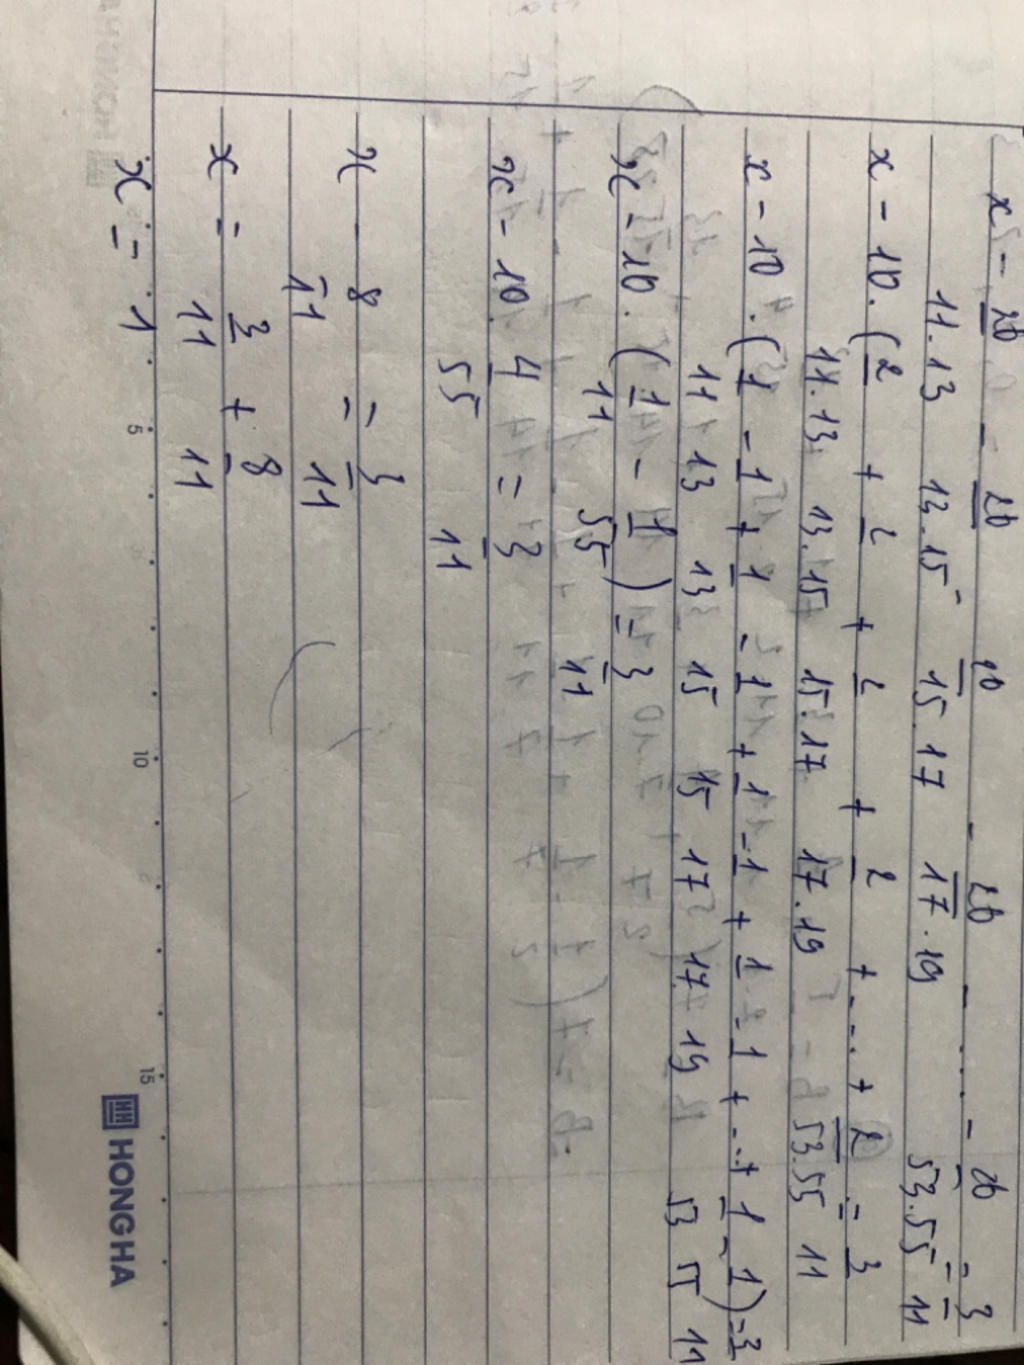 x - 20/11.13 - 20/13.15 - 20/15.17 - 20/17.19 - ... - 20/53.55 = 3/11
x - 10.(2/11.13 + 2/13.15 + 2/15.17 + 2/17.19 + ... + 2/53.55) = 3/11
x - 10.(1/11 - 1/13 + 1/13 - 1/15 + 1/15 - 1/17 + 1/17 - 1/19 + ... + 1/53 - 1/55) = 3/11
x - 10.(1/11 - 1/55) = 3/11
x - 10. 4/55 = 3/11
x - 8/11 = 3/11
x = 3/11 + 8/11
x = 1
5 10 15
HONG HA